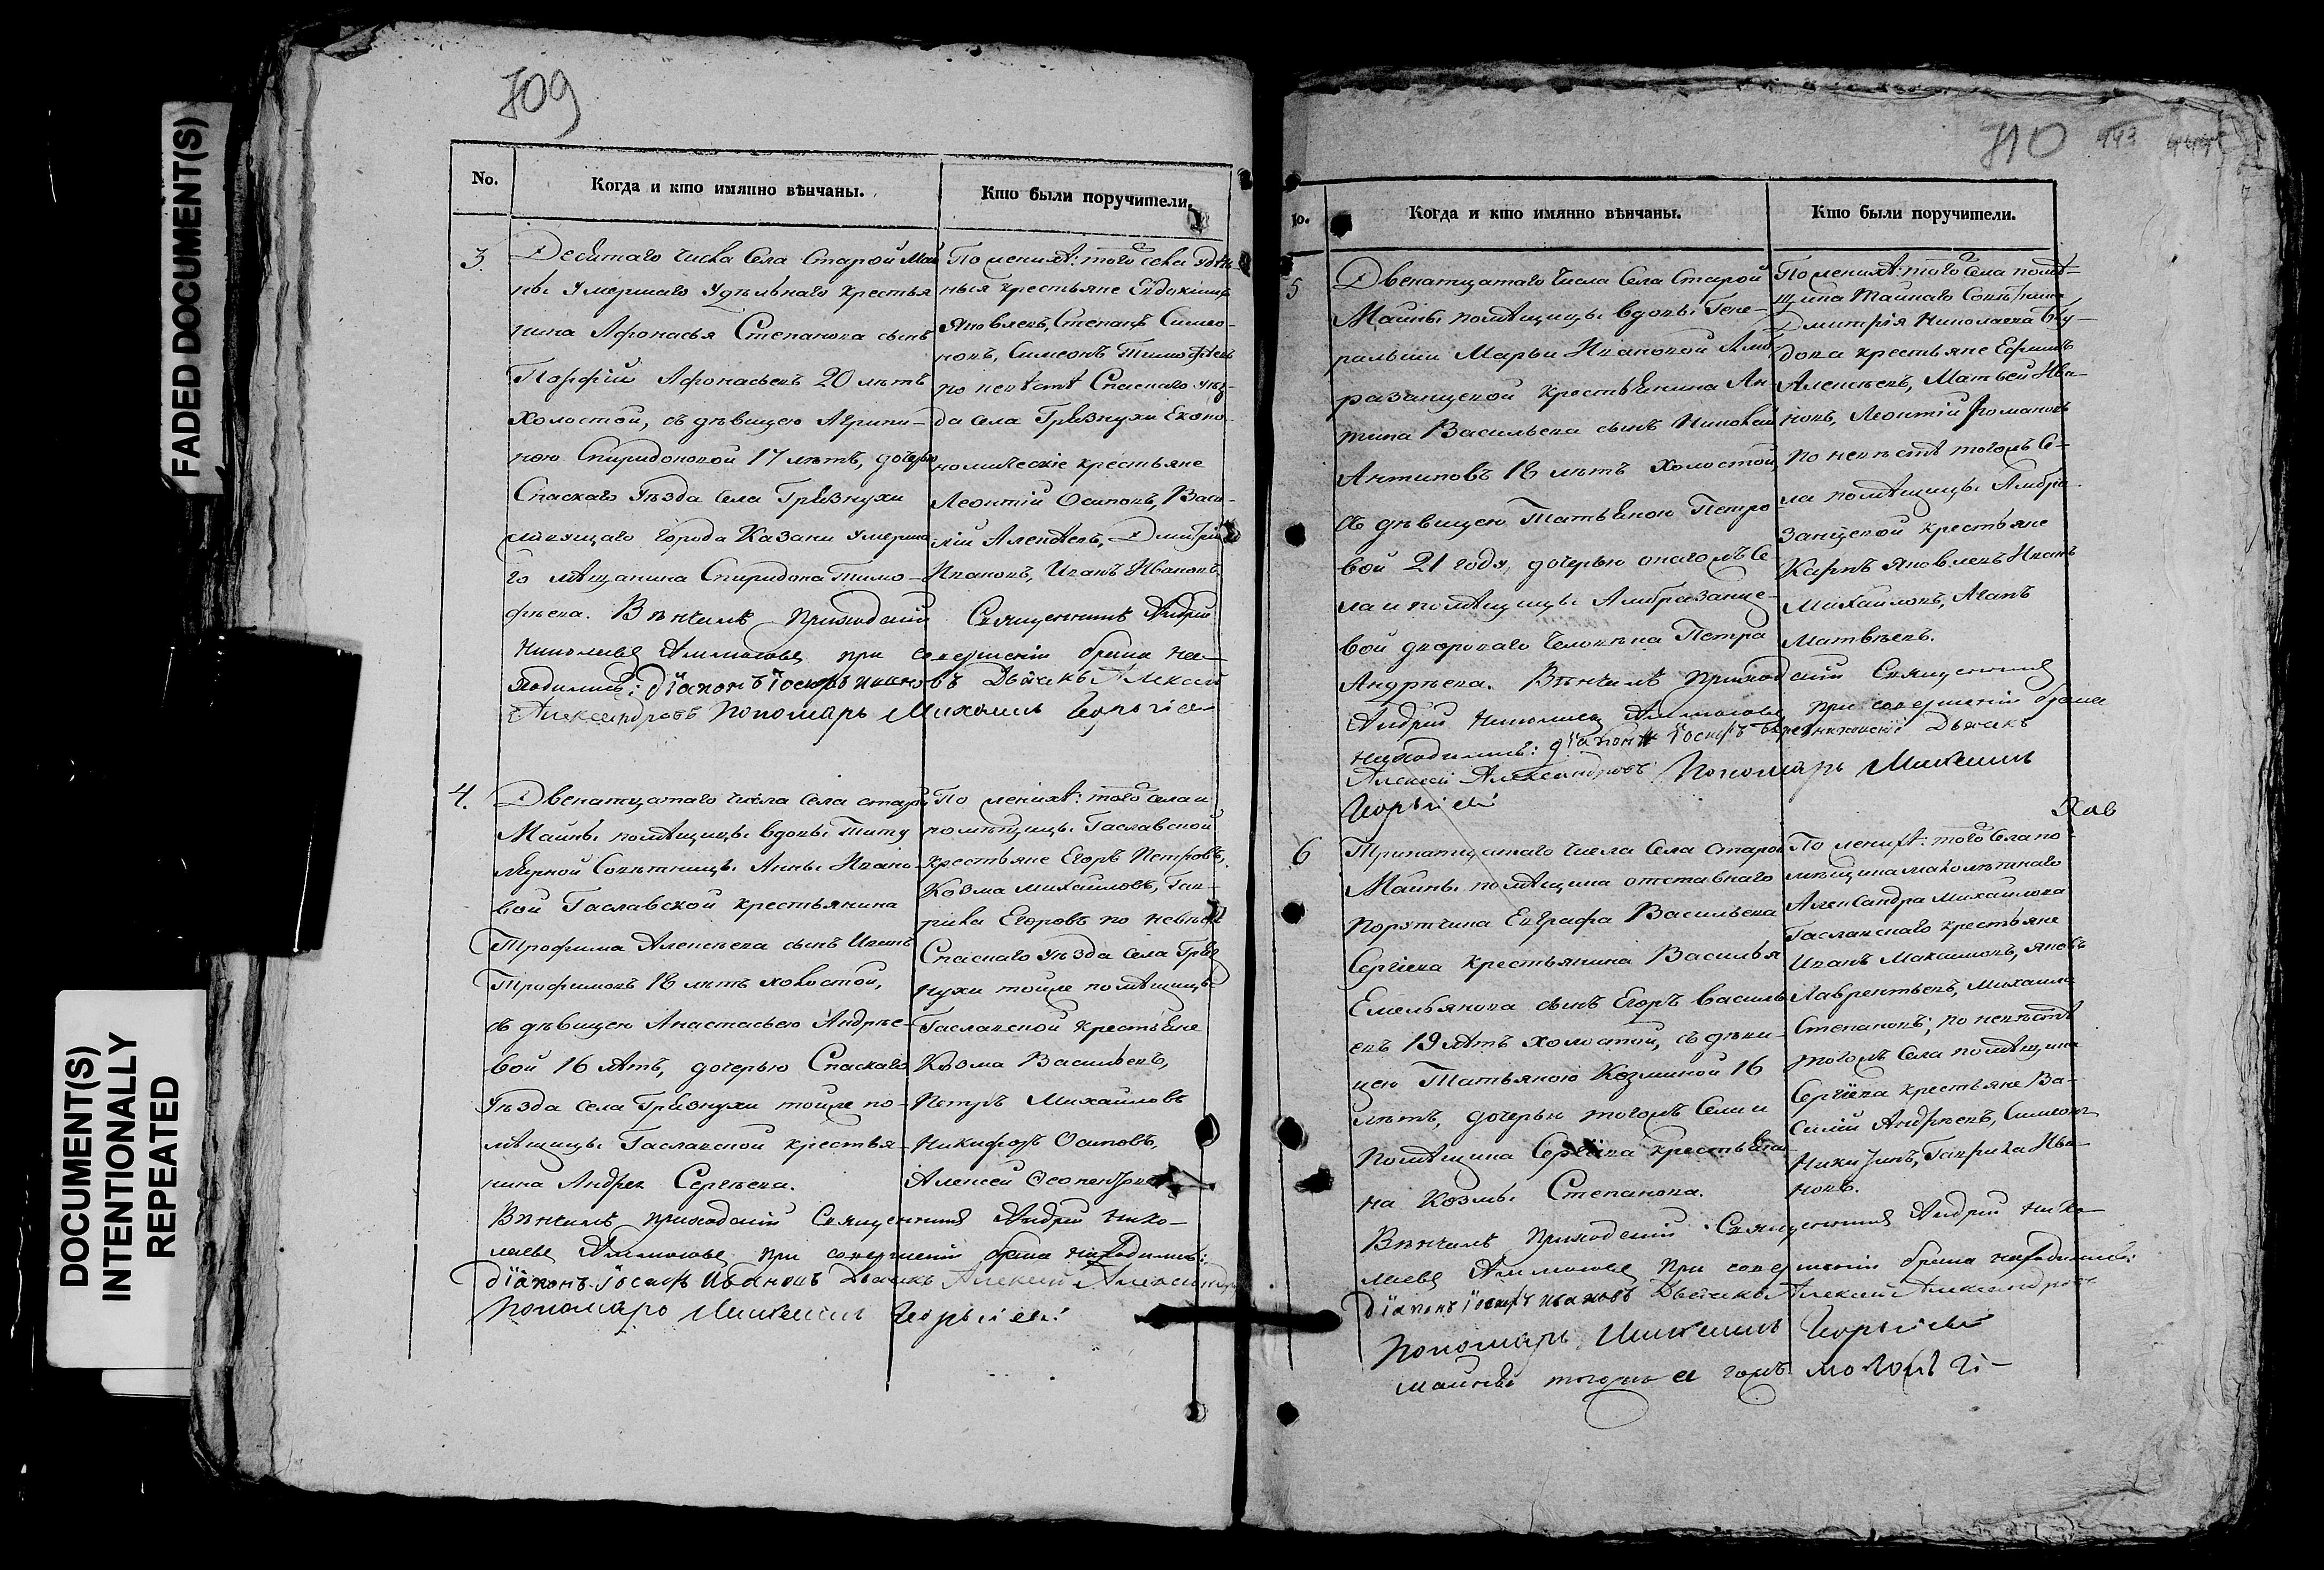 FADED DOCUMENT(S)
DOCUMENT(S)
INTENTIONALLY
REPEATED
709
No.
Когда и кто имянно вѣнчаны.
Кто были поручители.
3.
Десятаго числа Села Старой Май
ны умершаго удѣльнаго крестья
нина Афонасья Степанова сынъ
Порфій Афонасьевъ 20 лѣтъ
холостой, съ дѣвицею Агрипи-
ною Спиридоновой 17 лѣтъ, дочерью
Спаскаго уѣзда села Грязнухи
города Казани умерша
го мѣщанина Спиридона Тимо-
фѣева. Вѣнчалъ приходскій Священникъ Андрей
Николаевъ при совершеніи брака на-
ходились: діаконъ Іосифъ Ивановъ Дьячекъ Алексей
Александровъ Пономарь Михаилъ
По женихѣ: того села удѣль
ныя крестьяне Евдокимъ
Яковлевъ, Степанъ Симео-
новъ, Симеонъ Тимофѣевъ
по невѣстѣ Спаскаго уѣз-
да села Грязнухи Еконо-
номическіе крестьяне
Леонтій Осиповъ, Васи-
лій Алексѣевъ, Дмитрій
Ивановъ, Иванъ Ивановъ.
4.
Двенатцатаго числа Села старой
Майны помѣщицы вдовы Титу
лярной Совѣтницы Анны Ивано-
вой Гаславской крестьянина
Трофима Алексѣева сынъ Иванъ
Трофимовъ 18 лѣтъ холостой,
съ дѣвицею Анастасьею Андрѣе-
вой 16 лѣтъ, дочерью Спаскаго
уѣзда села Грязнухи тойже по-
мѣщицы Гаславской крестья-
нина Андрея Сергѣева.
Вѣнчалъ приходскій Священникъ Андрей Нико-
лаевъ при совершеніи брака находились:
діаконъ Іосифъ Ивановъ Дьячекъ Алексей Александр
Пономарь Михаилъ
По женихѣ: того села и
помѣщицы Гаславской
крестьяне Егоръ Петровъ,
Козма Михайловъ, Гав-
рила Егоровъ по невѣстѣ
Спаскаго уѣзда села Гряз
нухи тойже помѣщицы
Гаславской крестьяне
Козма Васильевъ,
Петръ Михайловъ
Никифоръ Осиповъ,
Алексей
710 443
Когда и кто имянно вѣнчаны.
Кто были поручители.
5
Двенатцатаго числа Села Старой
Майны помѣщицы вдовы Гене-
ральши Марьи Ивановой Амб
разанцевой крестьянина Ан
типа Васильева сынъ Николай
Антиповъ 18 лѣтъ холостой,
съ дѣвицею Татьяною Петро
вой 21 года, дочерью онагожъ Се-
ла и помѣщицы Амбразанце-
вой двороваго человѣка Петра
Андрѣева. Вѣнчалъ приходскій Священникъ
Андрей Николаевъ при совершеніи брака
находились: діаконъ Іосифъ Дьячекъ
Алексей Александровъ Пономарь Михаилъ
По женихѣ: того Села помѣ-
щика Тайнаго Совѣтника
Дмитрія Николаева
крестьяне Ефимъ
Алексѣевъ, Матвей Ива-
новъ, Леонтій Романовъ
по невѣстѣ тогожъ Се-
ла помѣщицы Амбра-
занцевой крестьяне
Карпъ Яковлевъ Иванъ
Михайловъ, Агапъ
Матвѣевъ.
6
Тринатцатаго числа Села Старой
Майны помѣщика отставнаго
Порутчика Евграфа Васильева
Сергѣева крестьянина Василья
Емельянова сынъ Егоръ Василь
евъ 19 лѣтъ холостой, съ дѣви-
цею Татьяною Козминой 16
лѣтъ, дочерью тогожъ Села и
помѣщика Сергѣева крестьяни-
на Козмы Степанова.
Вѣнчалъ приходскій Священникъ Андрей Нико-
лаевъ при совершеніи брака находились:
діаконъ Іосифъ Ивановъ Дьячекъ Алексей Александровъ
Пономарь Михаилъ
По женихѣ: того Села по-
мѣщика малолѣтнаго
Александра Михайлова
Гаславскаго крестьяне
Иванъ Максимовъ, Яковъ
Лаврентьевъ, Михаила
Степановъ; по невѣстѣ
тогожъ Села помѣщика
Сергѣева крестьяне Ва-
силій Андрѣевъ, Симеонъ
Никитинъ, Гаврила Ива-
новъ.